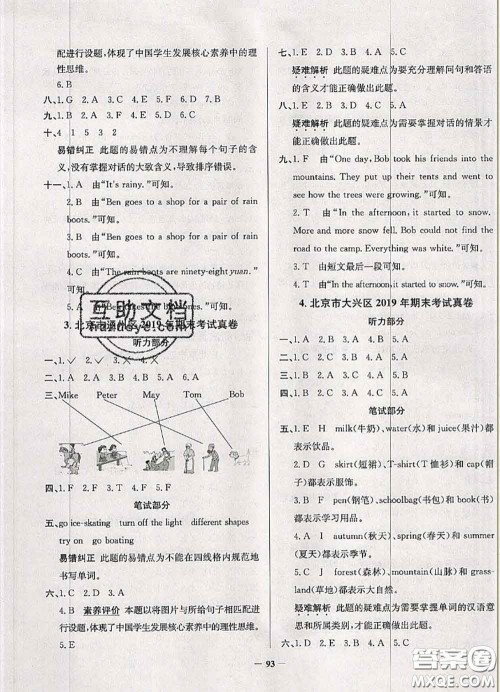 配进行设题，体现了中国学生发展核心素养中的理
性思维。
5. B
八、1. G 2. A 3. C 4. E 5. F 6. D
九、1. B 2. B 3. C 4. A 5. A
十、4 1 5 3 2
易错纠正 此题的易错点为不理解每个句子的含
义，没有掌握对话的大致含义，导致排序错误。
十一、1. A 由“It's rainy.”可知。
2. B 由“Ben goes to a shop for a pair of rain
boots.”可知。
3. B 由“Ben goes to a shop for a pair of rain
boots.”可知。
4. C 由“The rain boots are ninety-eight yuan.”可
知。
互助文档
3. 北京市通州区 2019 年期末考试真卷
听力部分
一、1. ✓ 2. ✓ 3. ✗ 4. ✗
二、1. C 2. B 3. A 4. C 5. A
三、Mike Peter May Tom Bob
四、1. F 2. F 3. T 4. F 5. F
笔试部分
五、go ice-skating turn off the light different shapes
try on go boating
易错纠正 此题的易错点为不能在四线格内规范地
书写单词。
六、1. C 2. D 3. A
4. B 素养评价 本题以将图片与所给句子相匹配进
行设题，体现了中国学生发展核心素养中的理性思维。
5. E
七、1. E 2. D 3. B 4. A 5. C
疑难解析 此题的疑难点为要充分理解问句和答语
的含义才能正确做出此题。
八、1. D 2. B 3. A 4. E 5. C
疑难解析 此题的疑难点为需要掌握对话的情景才
能正确做出此题。
九、1. F 由“One day, Bob took his friends into the
mountains. They put up their tents and went to
see how the trees were growing.”可知。
2. T 由“In the afternoon, it started to snow.”可知。
3. T 由“In the afternoon, it started to snow.
More and more snow fell. Bob could not find the
road to the camp. Everything was white.”可知。
4. T 由短文最后一段可知。
5. F
4. 北京市大兴区 2019 年期末考试真卷
听力部分
一、1. B 2. A 3. C 4. A 5. A
二、1. B 2. C 3. B 4. A 5. C
三、1. B 2. A 3. A 4. B 5. B
四、1. C 2. B 3. C 4. C 5. A
笔试部分
五、1. E H milk(牛奶)、water(水) 和 juice(果汁)都
表示饮品。
2. D G skirt(短裙)、T-shirt(T恤衫)和 cap(帽
子)都表示服饰。
3. B F pen(钢笔)、schoolbag(书包)和 book(书)
都表示学习用品。
4. A I autumn(秋天)、spring(春天)和 summer
(夏天)都表示季节。
5. C J forest(森林)、mountain(山脉)和 grass-
land(草地)都表示自然景观。
疑难解析 此题的疑难点为需要掌握单词的汉语意
思和所属类别，才能正确做出此题。
六、1. D 2. E 3. B 4. A 5. C
93
答案圈
MXQE.COM